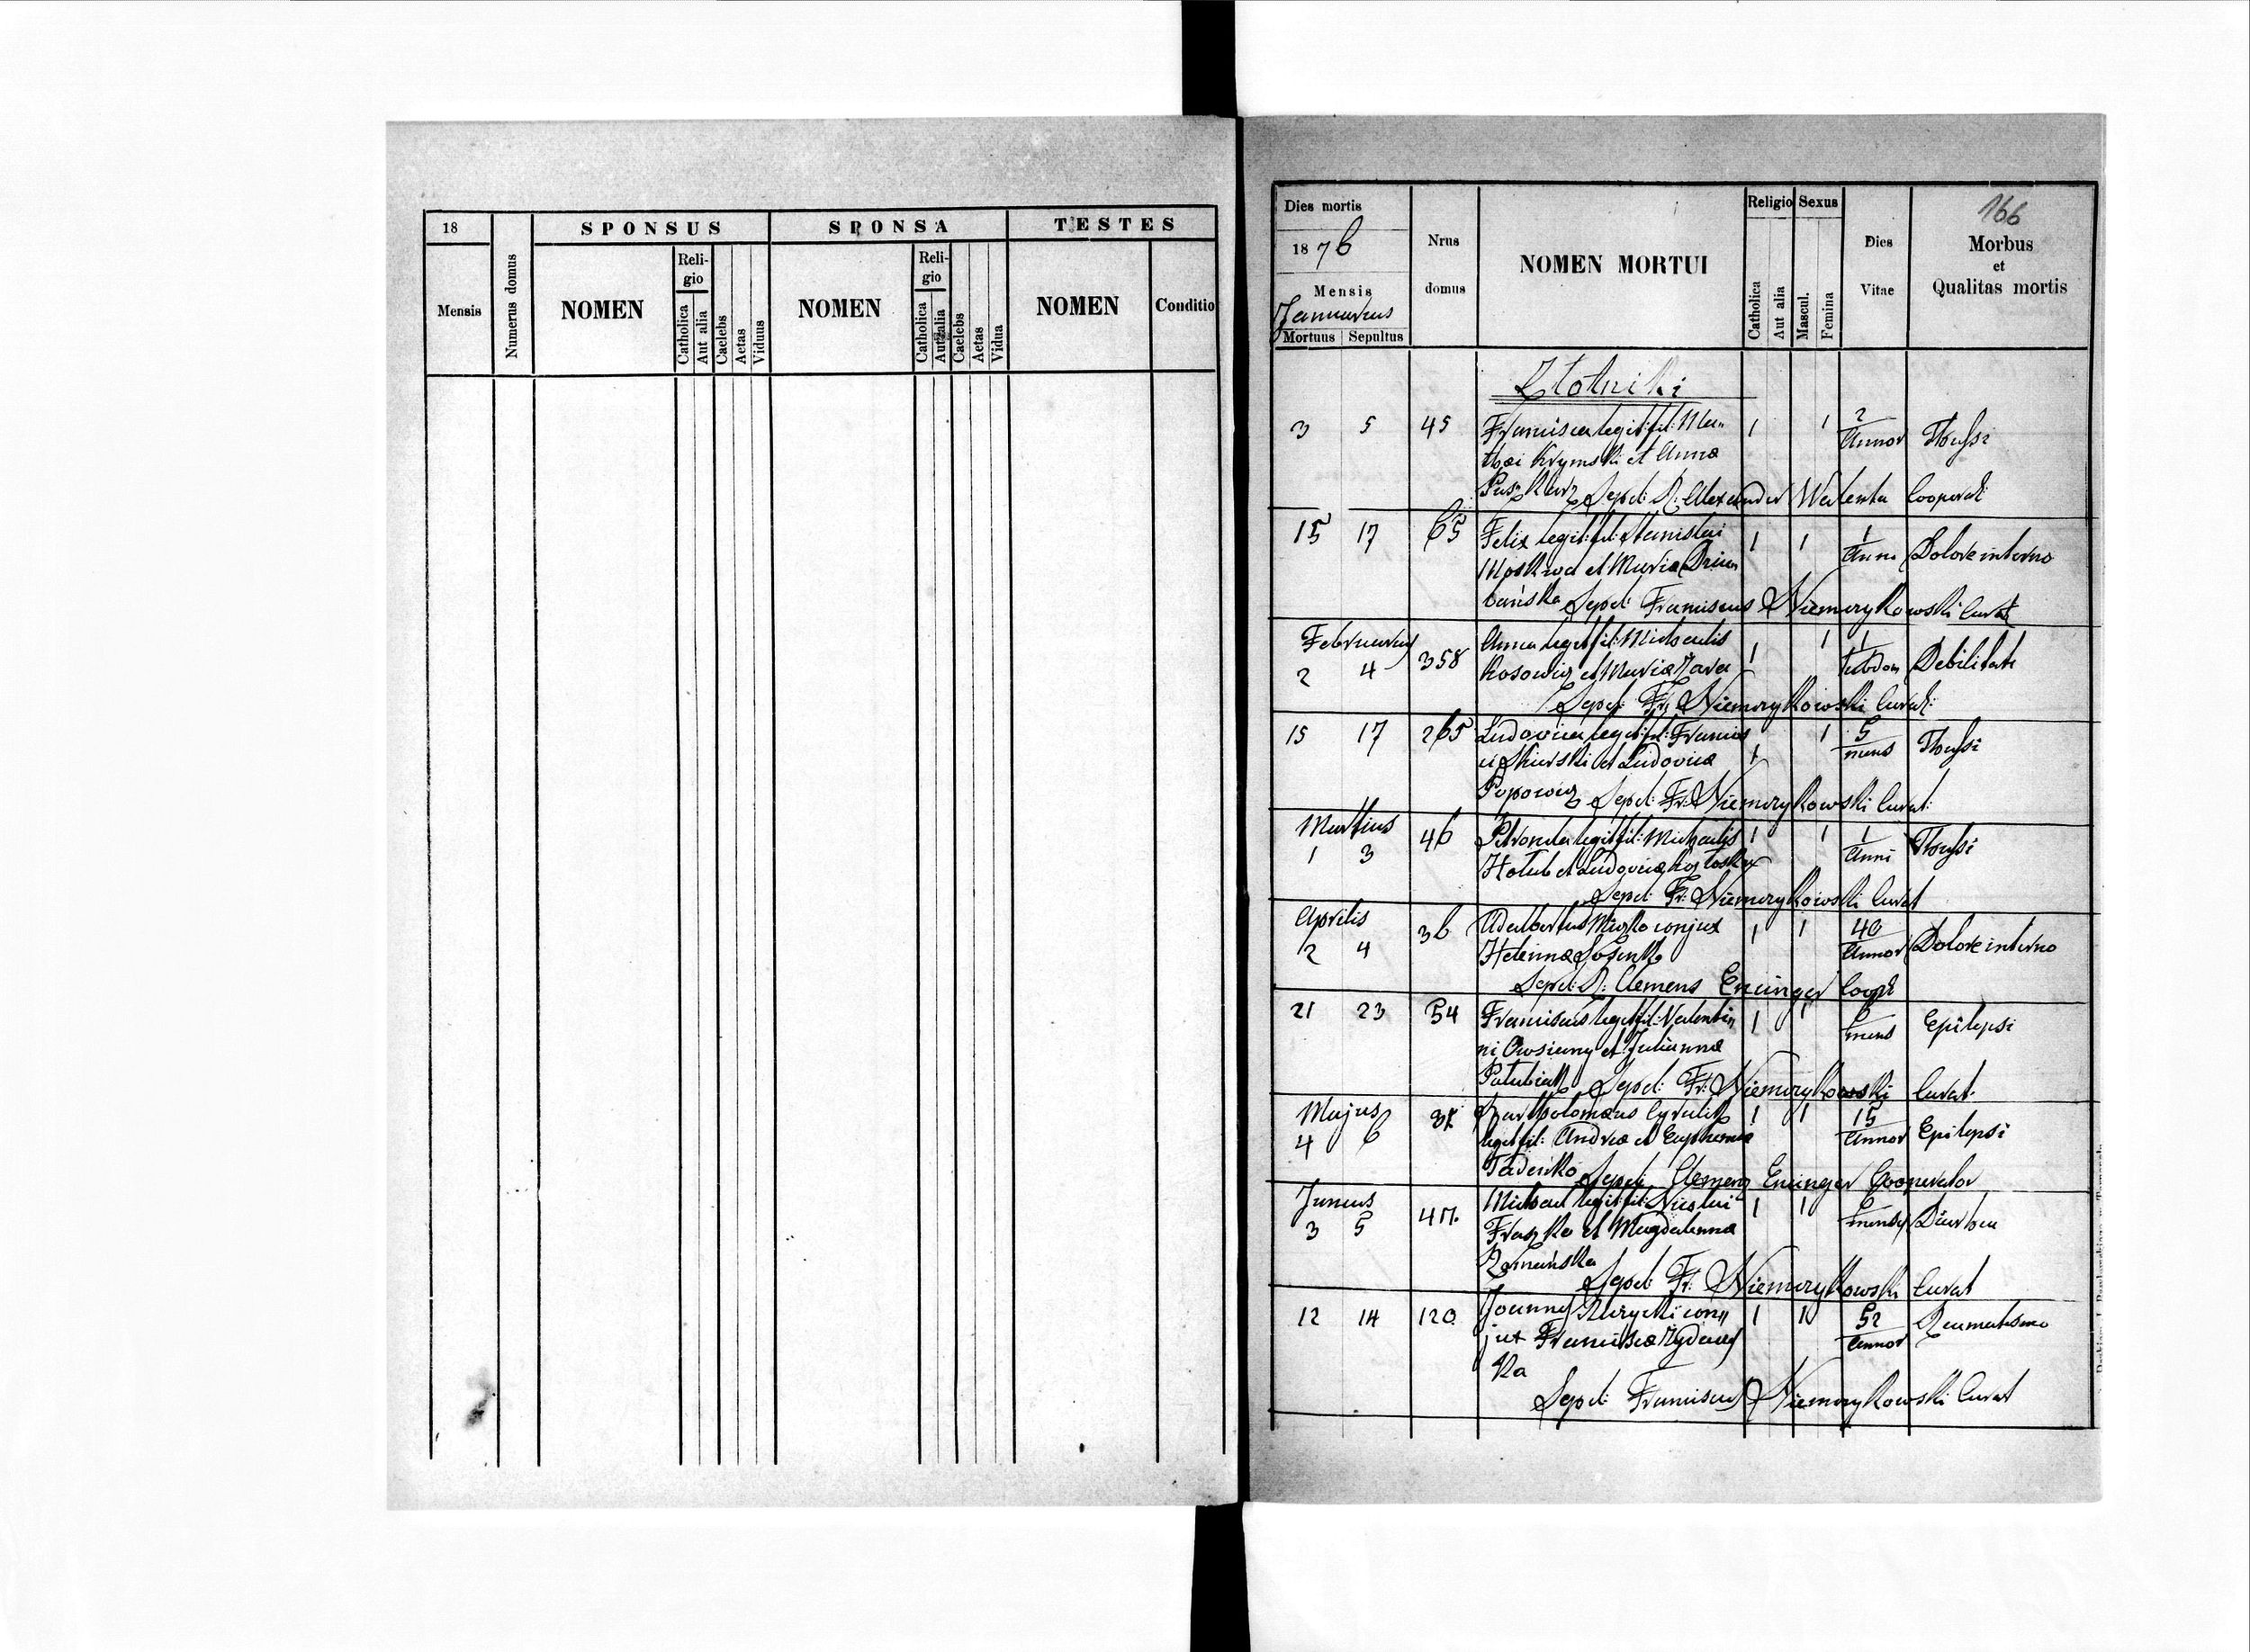 18
SPONSUS
SPONSA
TESTES
Mensis
Numerus domus
NOMEN
Reli-
gio
Catholica
Aut alia
Caelebs
Aetas
Viduus
NOMEN
Reli-
gio
Catholica
Aut alia
Caelebs
Aetas
Vidua
NOMEN
Conditio
Dies mortis
1876
Mensis
Januarius
Mortuus Sepultus
Nrus
domus
NOMEN MORTUI
Religio
Catholica
Aut alia
Sexus
Mascul.
Femina
Dies
Vitae
166
Morbus
et
Qualitas mortis
Złotniki
3 5 45 Francisca legit: fil: Ma„ 1 1 2 Annor Thussi
thaei Krymski et Anna
Puszkarz Sepel: D: Alexander Walenta Cooperat:
15 17 65 Felix legit: fil: Stanislai 1 1 1 Anni Dolore interno
Moskwa et Maria
Sepel: Franciscus Niemczykowski Curat
Februarius
2 4 358 Anna legit fil: Michaelis 1 1 1 hebdom Debilitate
Kosowicz et Maria
Sepel: Fr: Niemczykowski Curat:
15 17 265 Ludovica legit: fil: Francis 1 1 5 mens Thussi
ci Skurski et Ludovica
Popowicz Sepel: Fr: Niemczykowski Curat:
Martius
1 3 46 Petronela legit: fil: Michaelis 1 1 1 Anni Thussi
Holub et Ludovica
Sepel: Fr: Niemczykowski Curat
Aprilis
2 4 36 Adalbertus conjux 1 1 40 Annor Dolore interno
Helenna
Sepel: D: Clemens Enzinger Coop:
21 23 54 Franciscus legit: fil: Valenti„ 1 1 mens Epilepsi
ni Owsiany et Julianna
Sepel: Fr: Niemczykowski Curat.
Majus
4 6 Bartholomaeus 1 1 15 Annor Epilepsi
legit fil: Andrea et Euphemia
Fedeńko Sepel: Clemens Enzinger Cooperator
Junius
3 5 Michael legit: fil: Nicolai 1 1
Fraszka et Magdalenna
Sepel: Fr: Niemczykowski Curat
12 14 120 Joannes conj 1 1 52 Annor Reumatismo
jux Francisca
ka
Sepel: Franciscus Niemczykowski Curat